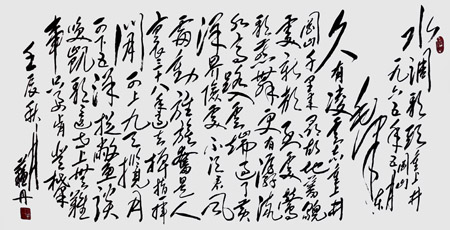 水调歌头 重上井
一九六五年五月 冈山
毛泽东
久有凌云志重上井
冈山千里来寻故地旧貌
变新颜到处莺
歌燕舞更有潺潺流
水高路入云端过了黄
洋界险处不须看风
雷动旌旗奋是人
寰三十八年过去弹指一挥
间可上九天揽月
可下五洋捉鳖谈
笑凯歌还世上无难
事只要肯登攀
壬辰秋月